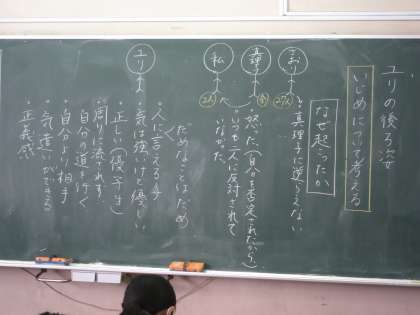 ユリの後ろ姿
いじめについて考える
なぜ起こったか
さおり
27人
→真理子に逆らえない
真理子
怒った(自分を否定されたから)
いつも二人に反対されて
いなかった
私
2人
ユリ
だめなことはだめ
・人に言える子
・気は強いけど優しい
・正しい(優等生)
・周りに流されず
自分の道を行く
・自分より相手
・気遣いができる
・正義感